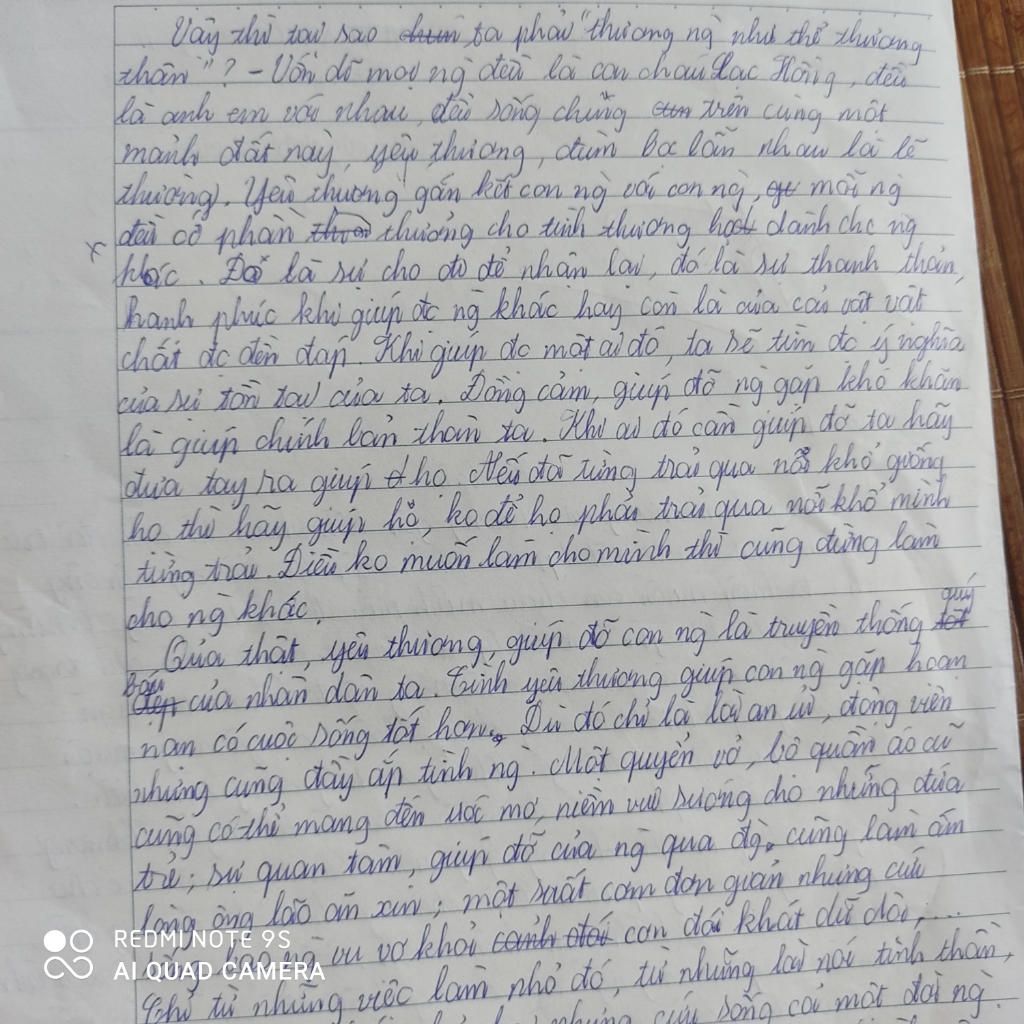 Vậy thì tại sao chún ta phải "thương ng như thể thương
thân"? - Vốn dĩ mọi ng đều là con cháu Lạc Hồng, đều
là anh em với nhau, đều sống chũng trên cùng một
mảnh đất này, yêu thương, đùm bọc lẫn nhau là lẽ
thường. Yêu thương gắn kết con ng với con ng, mỗi ng
đều có phần thưởng cho tình thương dành cho ng
x khác. Đó là sự cho đi để nhận lại, đó là sự thanh thản,
hạnh phúc khi giúp đc ng khác hay còn là của cải vật
chất đc đền đáp. Khi giúp đc một ai đó, ta sẽ tìm đc ý nghĩa
của sự tồn tại của ta. Đồng cảm, giúp đỡ ng gặp khó khăn
là giúp chính bản thân ta. Khi ai đó cần giúp đỡ ta hãy
đưa tay ra giúp họ. Nếu đã từng trải qua nỗi khổ giống
họ thì hãy giúp họ, ko để họ phải trải qua nỗi khổ mình
từng trải. Điều ko muốn làm cho mình thì cũng đừng làm
cho ng khác.
Qủa thật, yêu thương, giúp đỡ con ng là truyền thống tốt quý
đẹp báu của nhân dân ta. Tình yêu thương giúp con ng gặp hoạn
nạn có cuộc sống tốt hơn. Dù đó chỉ là lời an ủi, động viên
nhưng cũng đầy ắp tình ng. Một quyển vở, bộ quần áo cũ
cũng có thể mang đến ước mơ, niềm vui sướng cho những đứa
trẻ; sự quan tâm, giúp đỡ của ng qua đg cũng làm ấm
lòng ông lão ăn xin; một suất cơm đơn giản nhưng cứu
ng vu vơ khỏi cảnh đói cơn đói khát dữ dội;...
Chỉ từ những việc làm nhỏ đó, từ những lời nói tinh thần,
những cuộc sống của một đời ng.
REDMI NOTE 9S
AI QUAD CAMERA